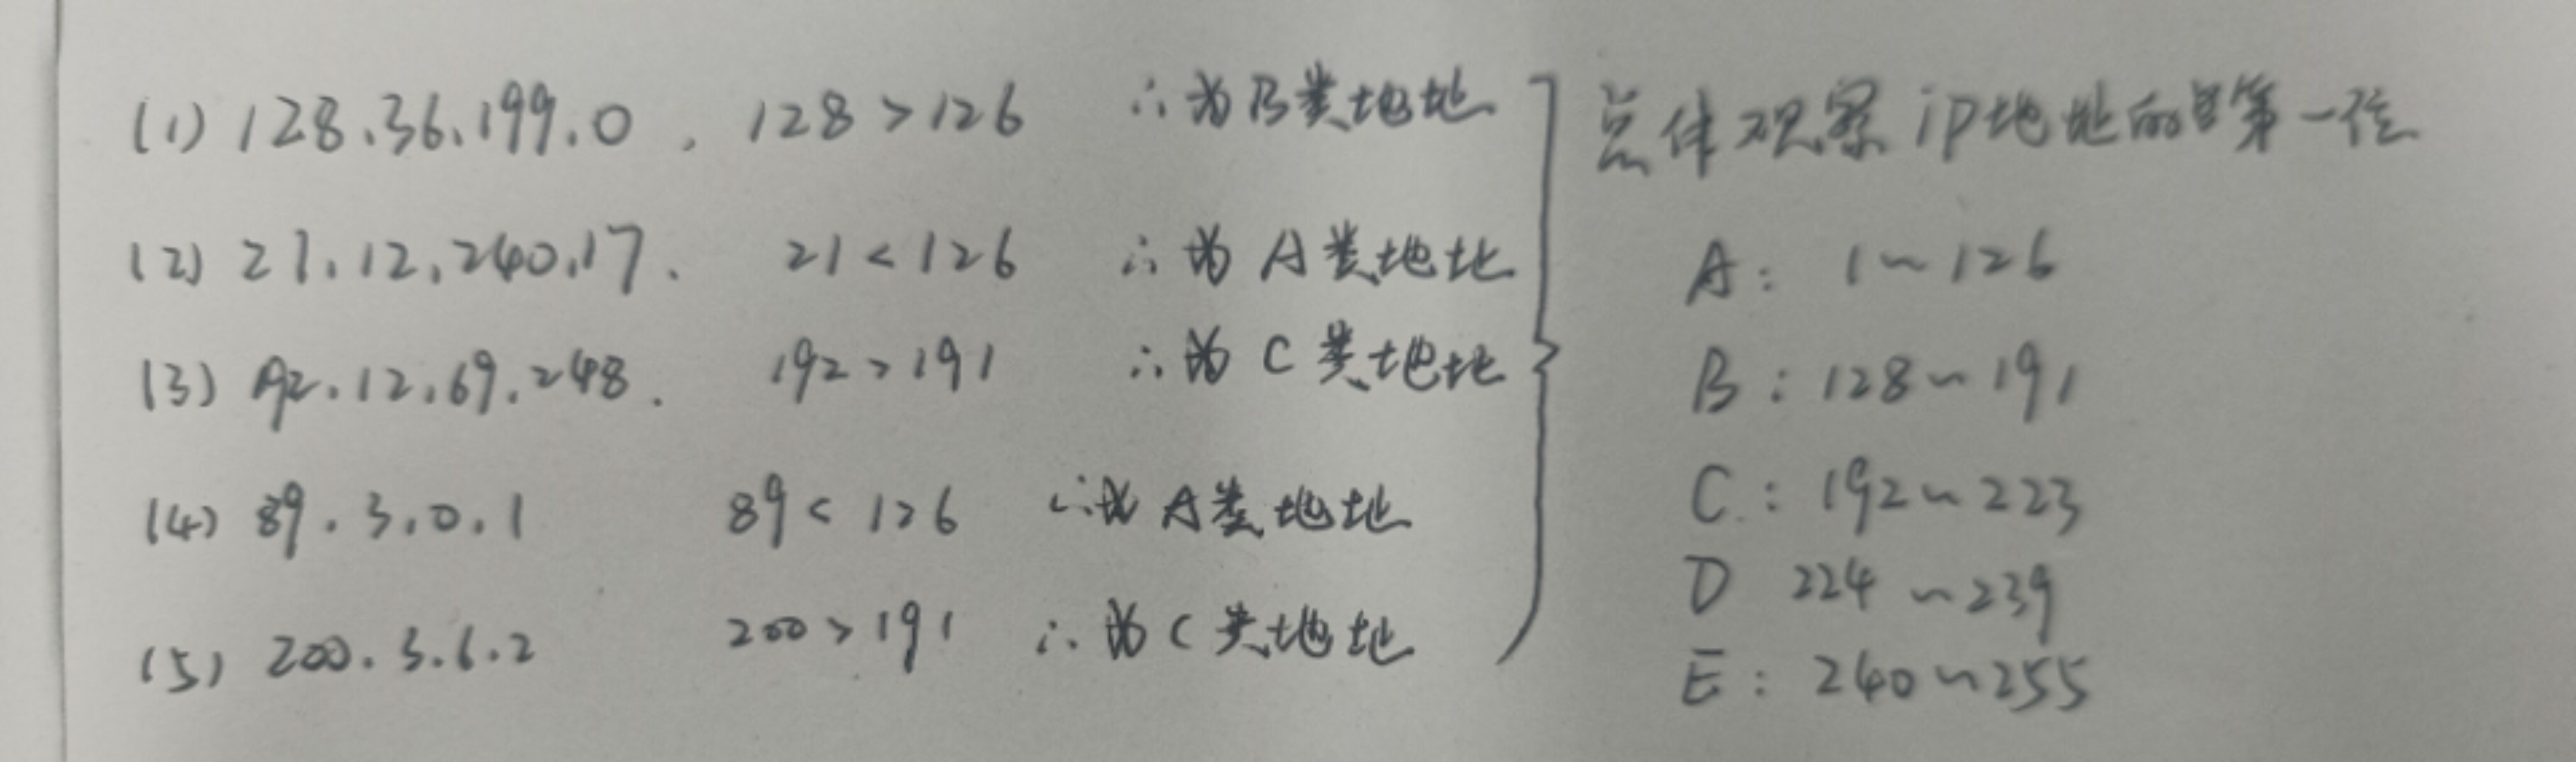 (1) 128.36.199.0, 128>126 ∴为B类地址
(2) 21.12.240.17. 21<126 ∴为A类地址
(3) 192.12.69.248. 192>191 ∴为C类地址
(4) 89.3.0.1 89<126 ∴为A类地址
(5) 200.3.6.2 200>191 ∴为C类地址
总体观察ip地址的第一位
A: 1~126
B: 128~191
C: 192~223
D 224~239
E: 240~255